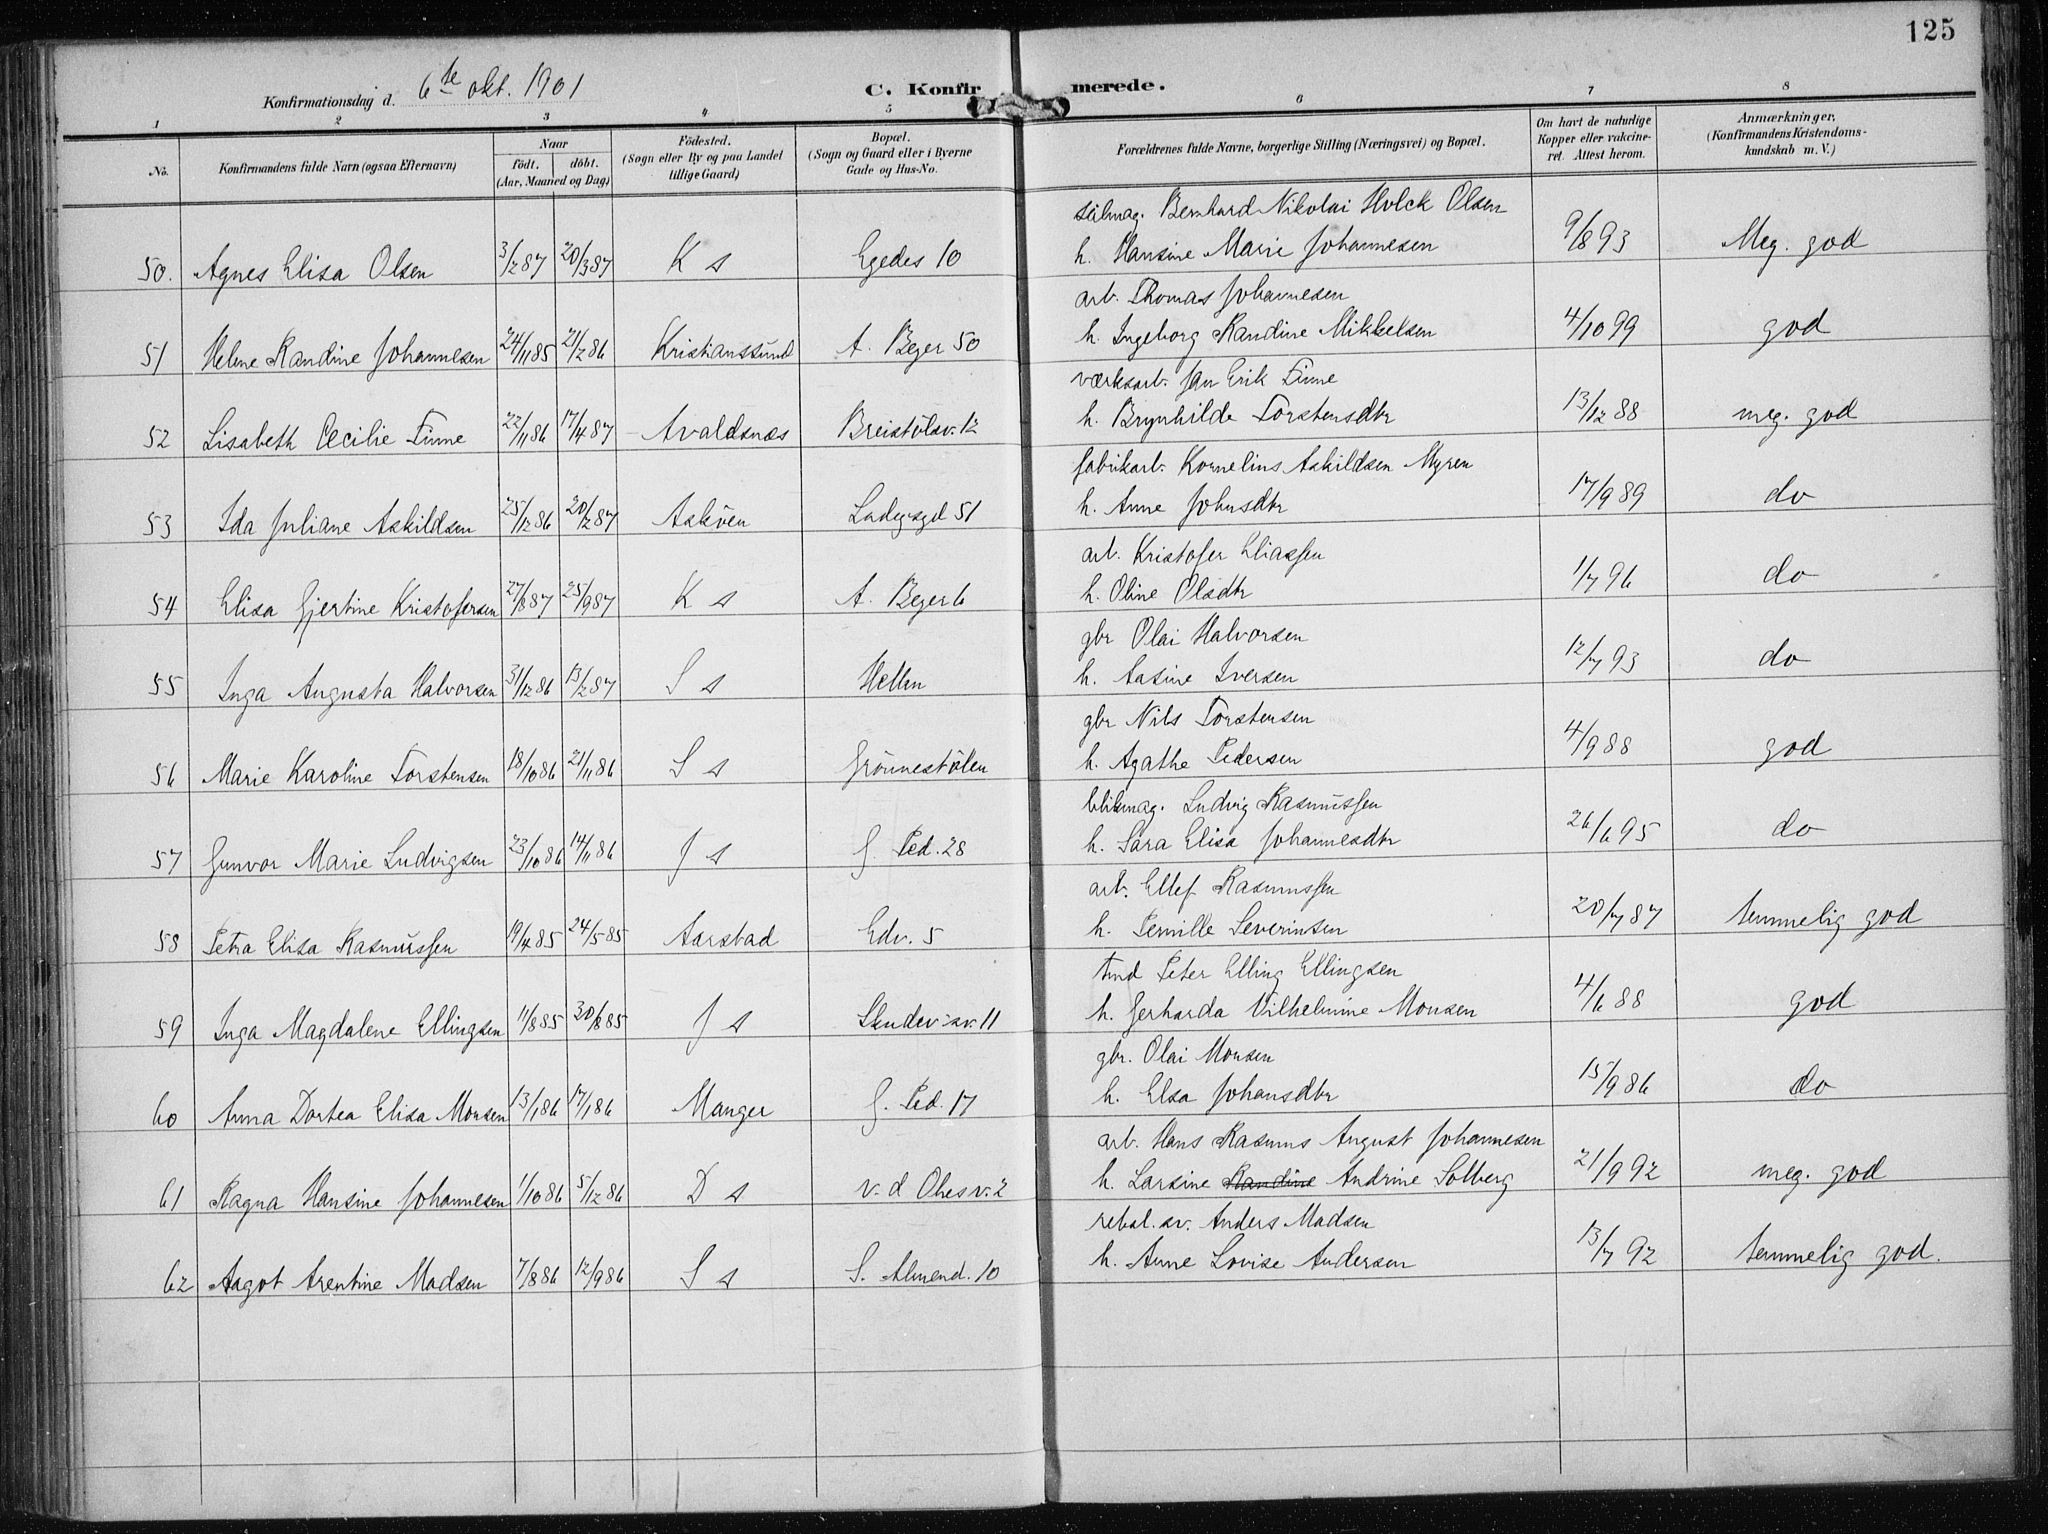 125
Konfirmationsdag d. 6te okt. 1901
C. Konfirmerede.
1 2 3 4 5 6 7 8
No. Konfirmandens fulde Navn (ogsaa Efternavn) Naar födt. döbt. (Aar, Maaned og Dag) Födested. (Sogn eller By og paa Landet tillige Gaard) Bopæl. (Sogn og Gaard eller i Byerne Gade og Hus-No. Forældrenes fulde Navne, borgerlige Stilling (Næringsvei) og Bopæl. Om havt de naturlige Kopper eller vakcineret. Attest herom. Anmærkninger, (Konfirmandens Kristendomskundskab m. V.)
seilmag. Bernhard Nikolai Holck Olsen
50. Agnes Elisa Olsen 3/2 87 20/3 87 K s Egedes 10 h. Hansine Marie Johannesen 9/8 93 Meg. god
arb. Thomas Johannesen
51 Helene Randine Johannesen 24/11 85 21/2 86 Kristianssund A. Beyer 50 h. Ingeborg Randine Mikkelsen 4/10 99 god
værksarb. Jan Erik Finne
52 Lisabeth Cecilie Finne 22/11 86 17/4 87 Avaldsnæs Breistölsv. 12 h. Brynhilde Torstensdtr 13/12 88 meg. god
fabrikarb. Kornelius Askildsen Myren
53 Ida Juliane Askildsen 25/12 86 20/2 87 Asköen Ladegsgd 51 h. Anne Johnsdtr 17/9 89 do
arb. Kristofer Eliassen
54 Elisa Gjertine Kristofersen 27/8 87 25/9 87 K s A. Beyer 6 h. Oline Olsdtr 1/7 96 do
gbr Olai Halvorsen
55 Inga Augusta Halvorsen 31/12 86 13/2 87 S s Hellen h. Aasine Iversen 12/7 93 do
gbr Nils Torstensen
56 Marie Karoline Torstensen 18/10 86 21/11 86 S s Grönnestölen h. Agathe Pedersen 4/9 88 god
blikmag. Ludvig Rasmussen
57 Gunvor Marie Ludvigsen 23/10 86 14/11 86 J s J. Ped. 28 h. Sara Elisa Johannesdtr 26/6 95 do
arb. Ellef Rasmussen
58 Petra Elisa Rasmussen 19/4 85 24/5 85 Aarstad Edv. 5 h. Pernille Severinsen 20/7 87 temmelig god
tmd Peter Elling Ellingsen
59 Inga Magdalene Ellingsen 11/8 85 30/8 85 J s Skudev-sv. 11 h. Gerharda Vilhelmine Monsen 4/6 88 god
gbr. Olai Monsen
60 Anna Dortea Elisa Monsen 13/1 86 17/1 86 Manger J. Ped. 17 h. Elsa Johansdtr 15/9 86 do
arb. Hans Rasmus August Johannesen
61 Ragna Hansine Johannesen 1/10 86 5/12 86 D s v. d Ohes v. 2 h. Larsine Randine Andrine Solberg 21/9 92 meg. god
rebsl.sv. Anders Madsen
62 Aagot Arentine Madsen 7/8 86 12/9 86 S s S. Almend. 10 h. Anne Lovise Andersen 13/7 92 temmelig god.